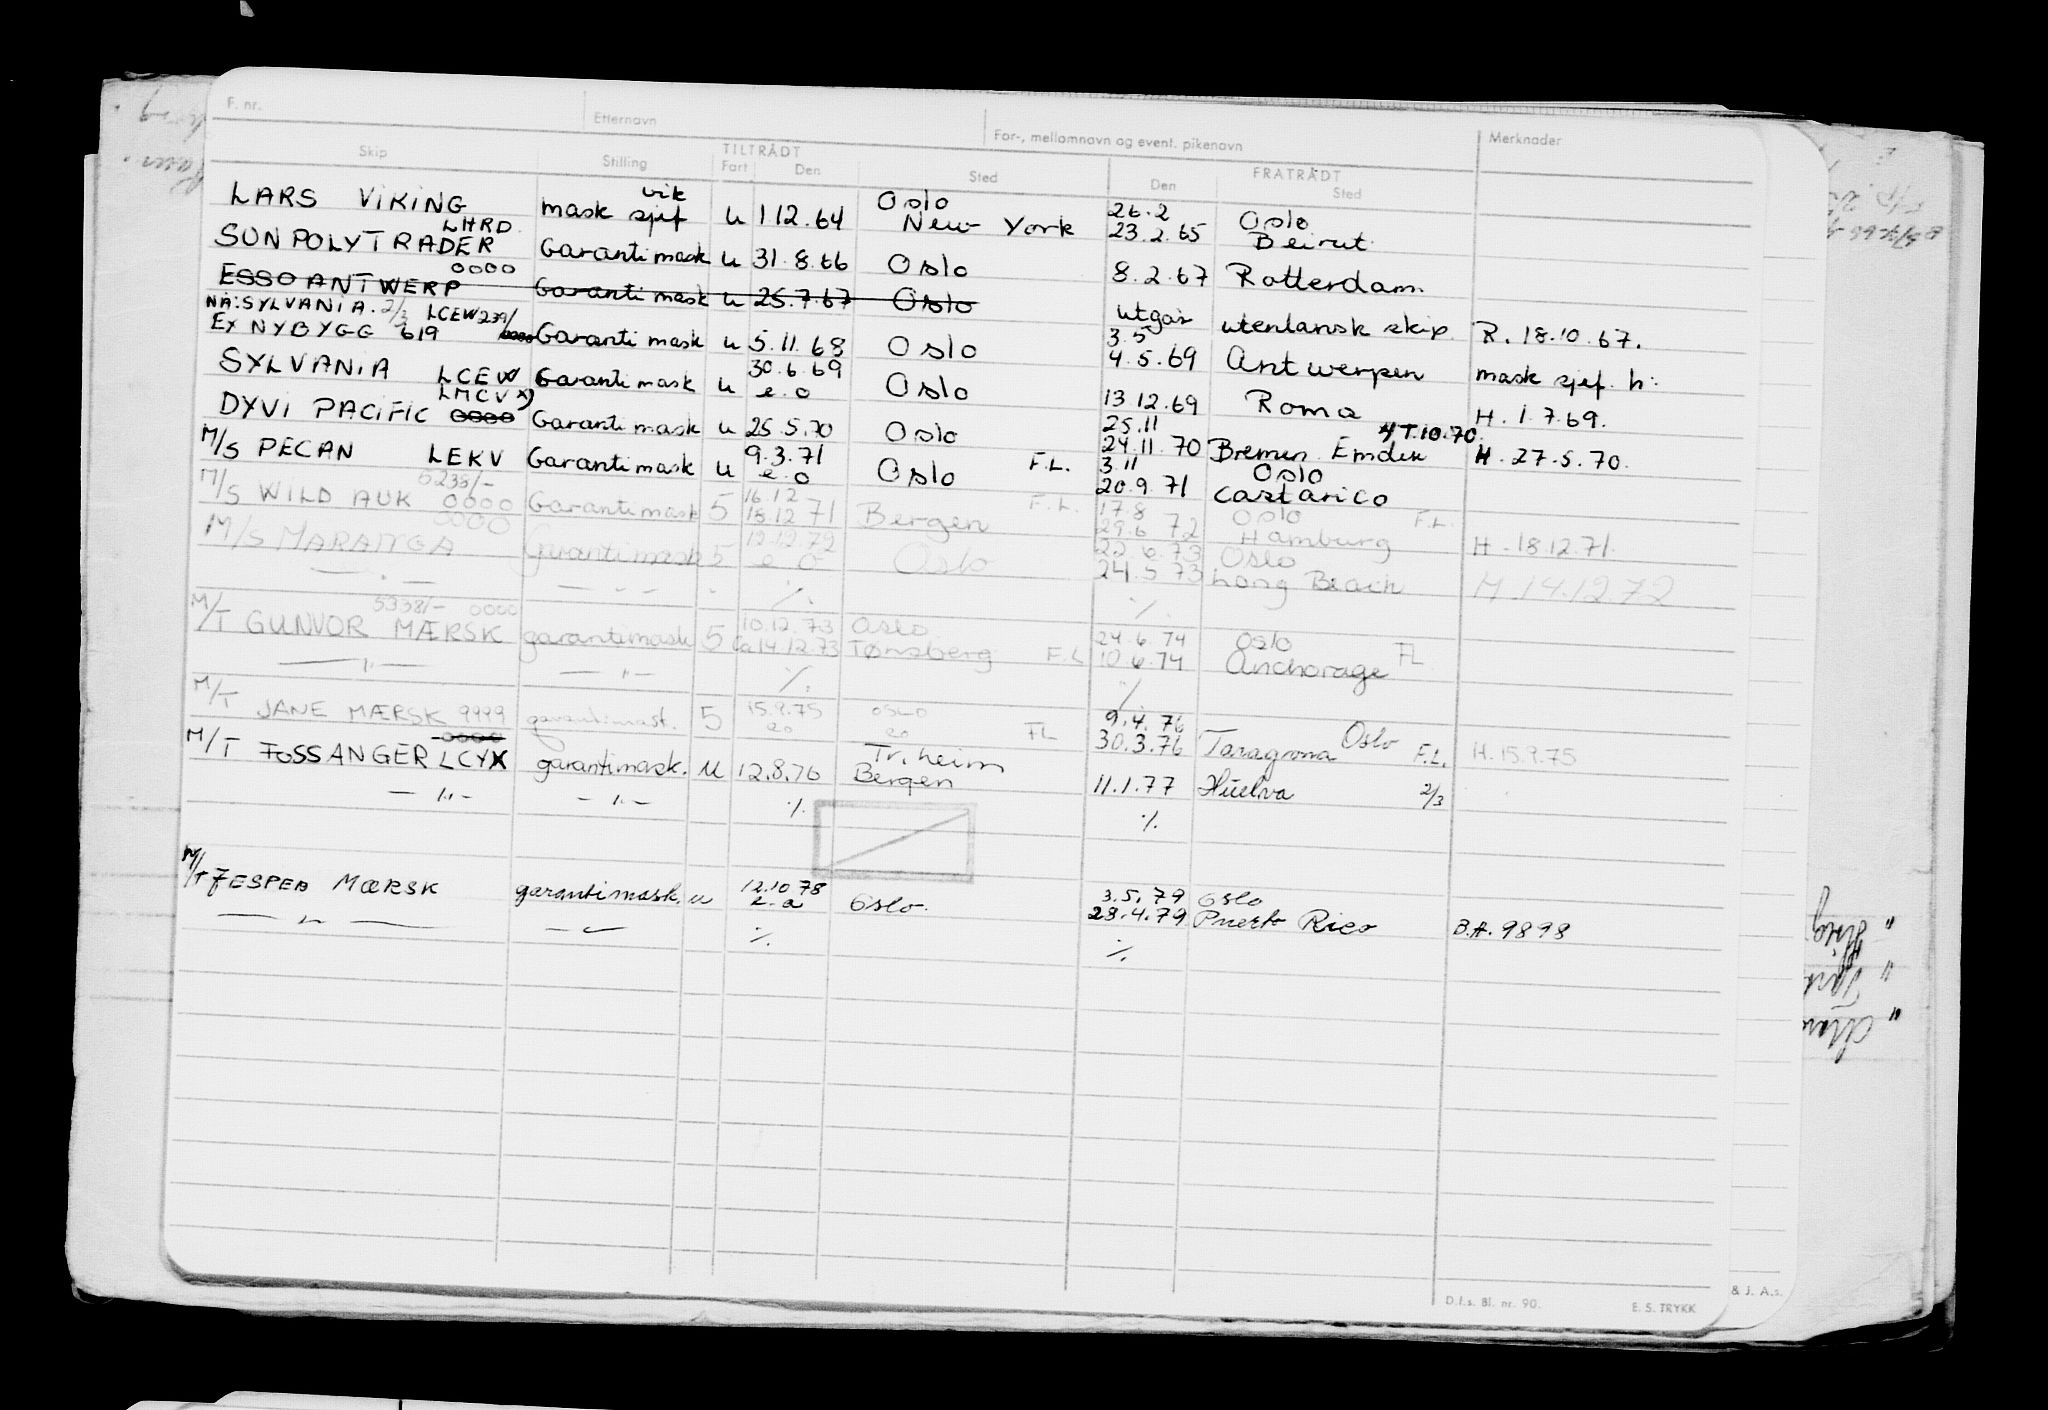 F. nr. Etternavn For-, mellomnavn og event. pikenavn Merknader
Skip Stilling TILTRÅDT Fart Den Sted FRATRÅDT Den Sted
LARS VIKING LHRD vik mask sjef u 1 12.64 Oslo New York 26.2 23.2.65 Oslo Beirut
SUNPOLYTRADER 0000 Garantimask u 31.8.66 Oslo 8.2.67 Rotterdam
ESSO ANTWERP Garantimask u 25.7.67 Oslo utgår utenlansk skip R. 18.10.67.
NÅ: SYLVANIA. 2/3 LCEW 239/
EX NYBYGG 619 Garantimask u 5.11.68 Oslo 3.5 4.5.69 Antwerpen mask sjef. h:
SYLVANIA LCEW Garantimask u 30.6.69 e.o Oslo 13.12.69 Roma H. 1.7.69.
DYVI PACIFIC LMCV x) 0000 Garantimask u 25.5.70 Oslo 25.11 24.11.70 Bremen Emden H. 27.5.70.
M/S PECAN LEKV Garantimask u 9.3.71 e.o Oslo F.L. 3.11 20.9.71 Oslo Castarico
M/S WILD AUK 0000 Garantimask 5 16.12 18.12 71 Bergen F.L. 17.8 29.6 72 Oslo Hamburg F.L. H. 18.12.71.
M/S MARANGA 0000 Garantimask 5 12.12.72 e o Oslo 22.6.73 24.5 73 Oslo Long Beach H. 14.12.72
— " — — " — ./. ./.
M/T GUNVOR MÆRSK 5338/- 0000 garantimask 5 10.12.73 Ca 14.12.73 Oslo Tønsberg F.L 24.6.74 10.6.74 Oslo Anchorage FL
— " — — " — ./. ./.
M/T JANE MÆRSK 9999 garantimask. 5 15.9.75 eo OSLO eo FL 9.4.76 30.3.76 Oslo Taragrona F.L. H. 15.9.75
M/T FOSSANGER 0000 LCYX garantimask. u 12.8.76 Tr.heim Bergen 11.1.77 Huelva 2/3
— " — — " — ./. ./.
M/T JESPER MÆRSK garantimask. u 12.10 78 Oslo. 3.5.79 Oslo 28.4.79 Puerto Rico B.A. 9898
— " — — " — ./. ./.
D.f.s. Bl. nr. 90. E. S. TRYKK
& J. A.s.